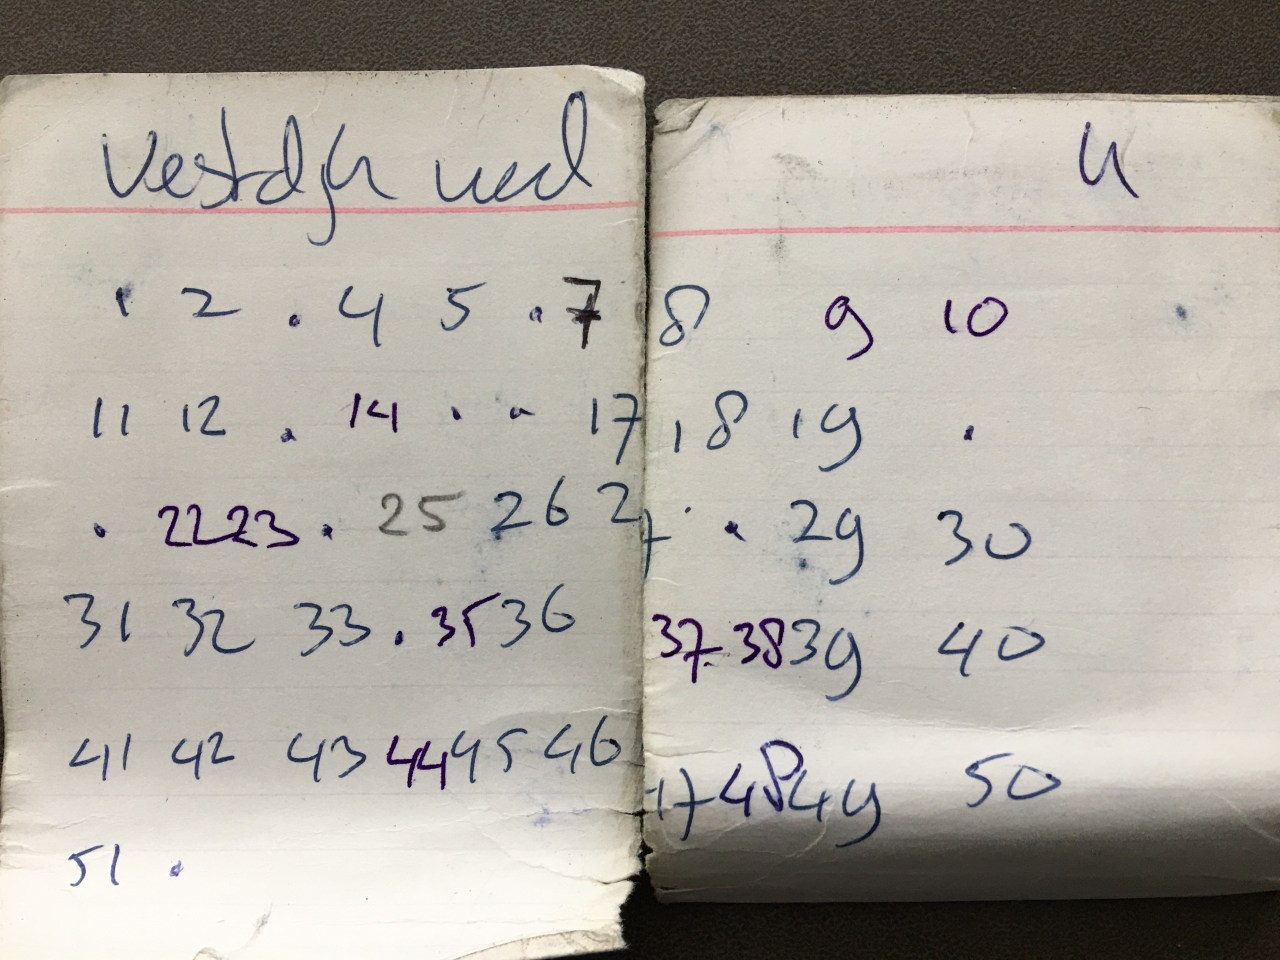 Vestdijk ned u
. 2 . 4 5 . 7 8 9 10
11 12 . 14 . . 17 18 19 .
. 22 23 . 25 26 27 . 29 30
31 32 33 . 35 36 37 38 39 40
41 42 43 44 45 46 47 48 49 50
51 .